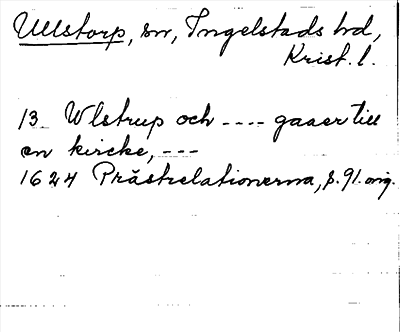 Ullstorp, sn, Ingelstads hd,
Krist. l.
13. Wlstrup och ---- gaaer till
en kircke, ---
1624 Prästrelationerna, s. 91. orig.